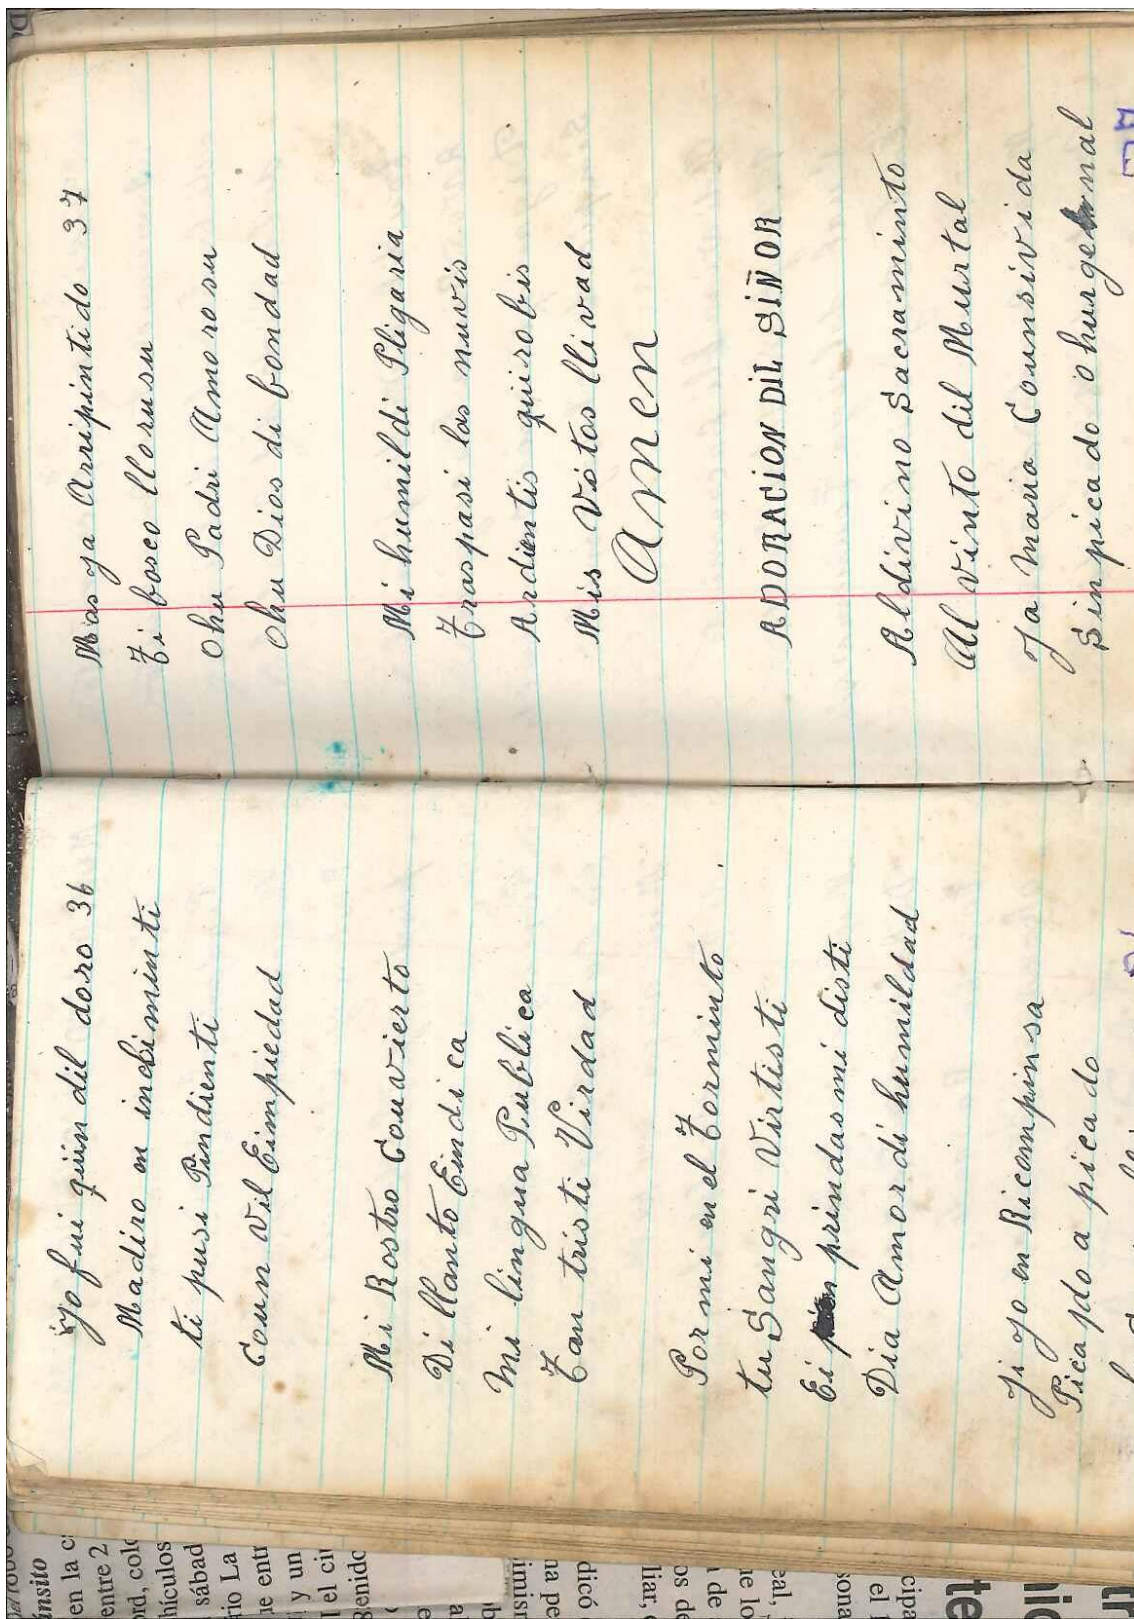 yo fui quin dil doro 36
Madiro en inclimint
ti pusi Pindienti
Coun vil Eimpiedad
Mi Rostro Couvierto
Di llanto Eindica
Mi lingua Publica
Tan tristi Virdad
Pormi en el Torminto
tu Sangri Virtisti
Ei prindasmi disti
Dia Amor di humildad
Ji yo en Ricompinsa
Picapdo a picado
Mas ya Arripintido 37
Ti bosco llorusu
Ohu Padri Amorosu
Ohu Dios di bondad
Mi humildi Pligaria
Traspasi las nuvis
Ardientis quirobis
Mis Vótos llivad
Amen
ADORACION DiL SiÑOR
Aldivino Sacraminto
Al vinto dil Murtal
ya Maria Counsivida
Sinpicado ohurgenal
ánsito
en la c
entre 2
ord, col
hículos
sábad
rio La
ue entr
i y un
l el ci
8enido